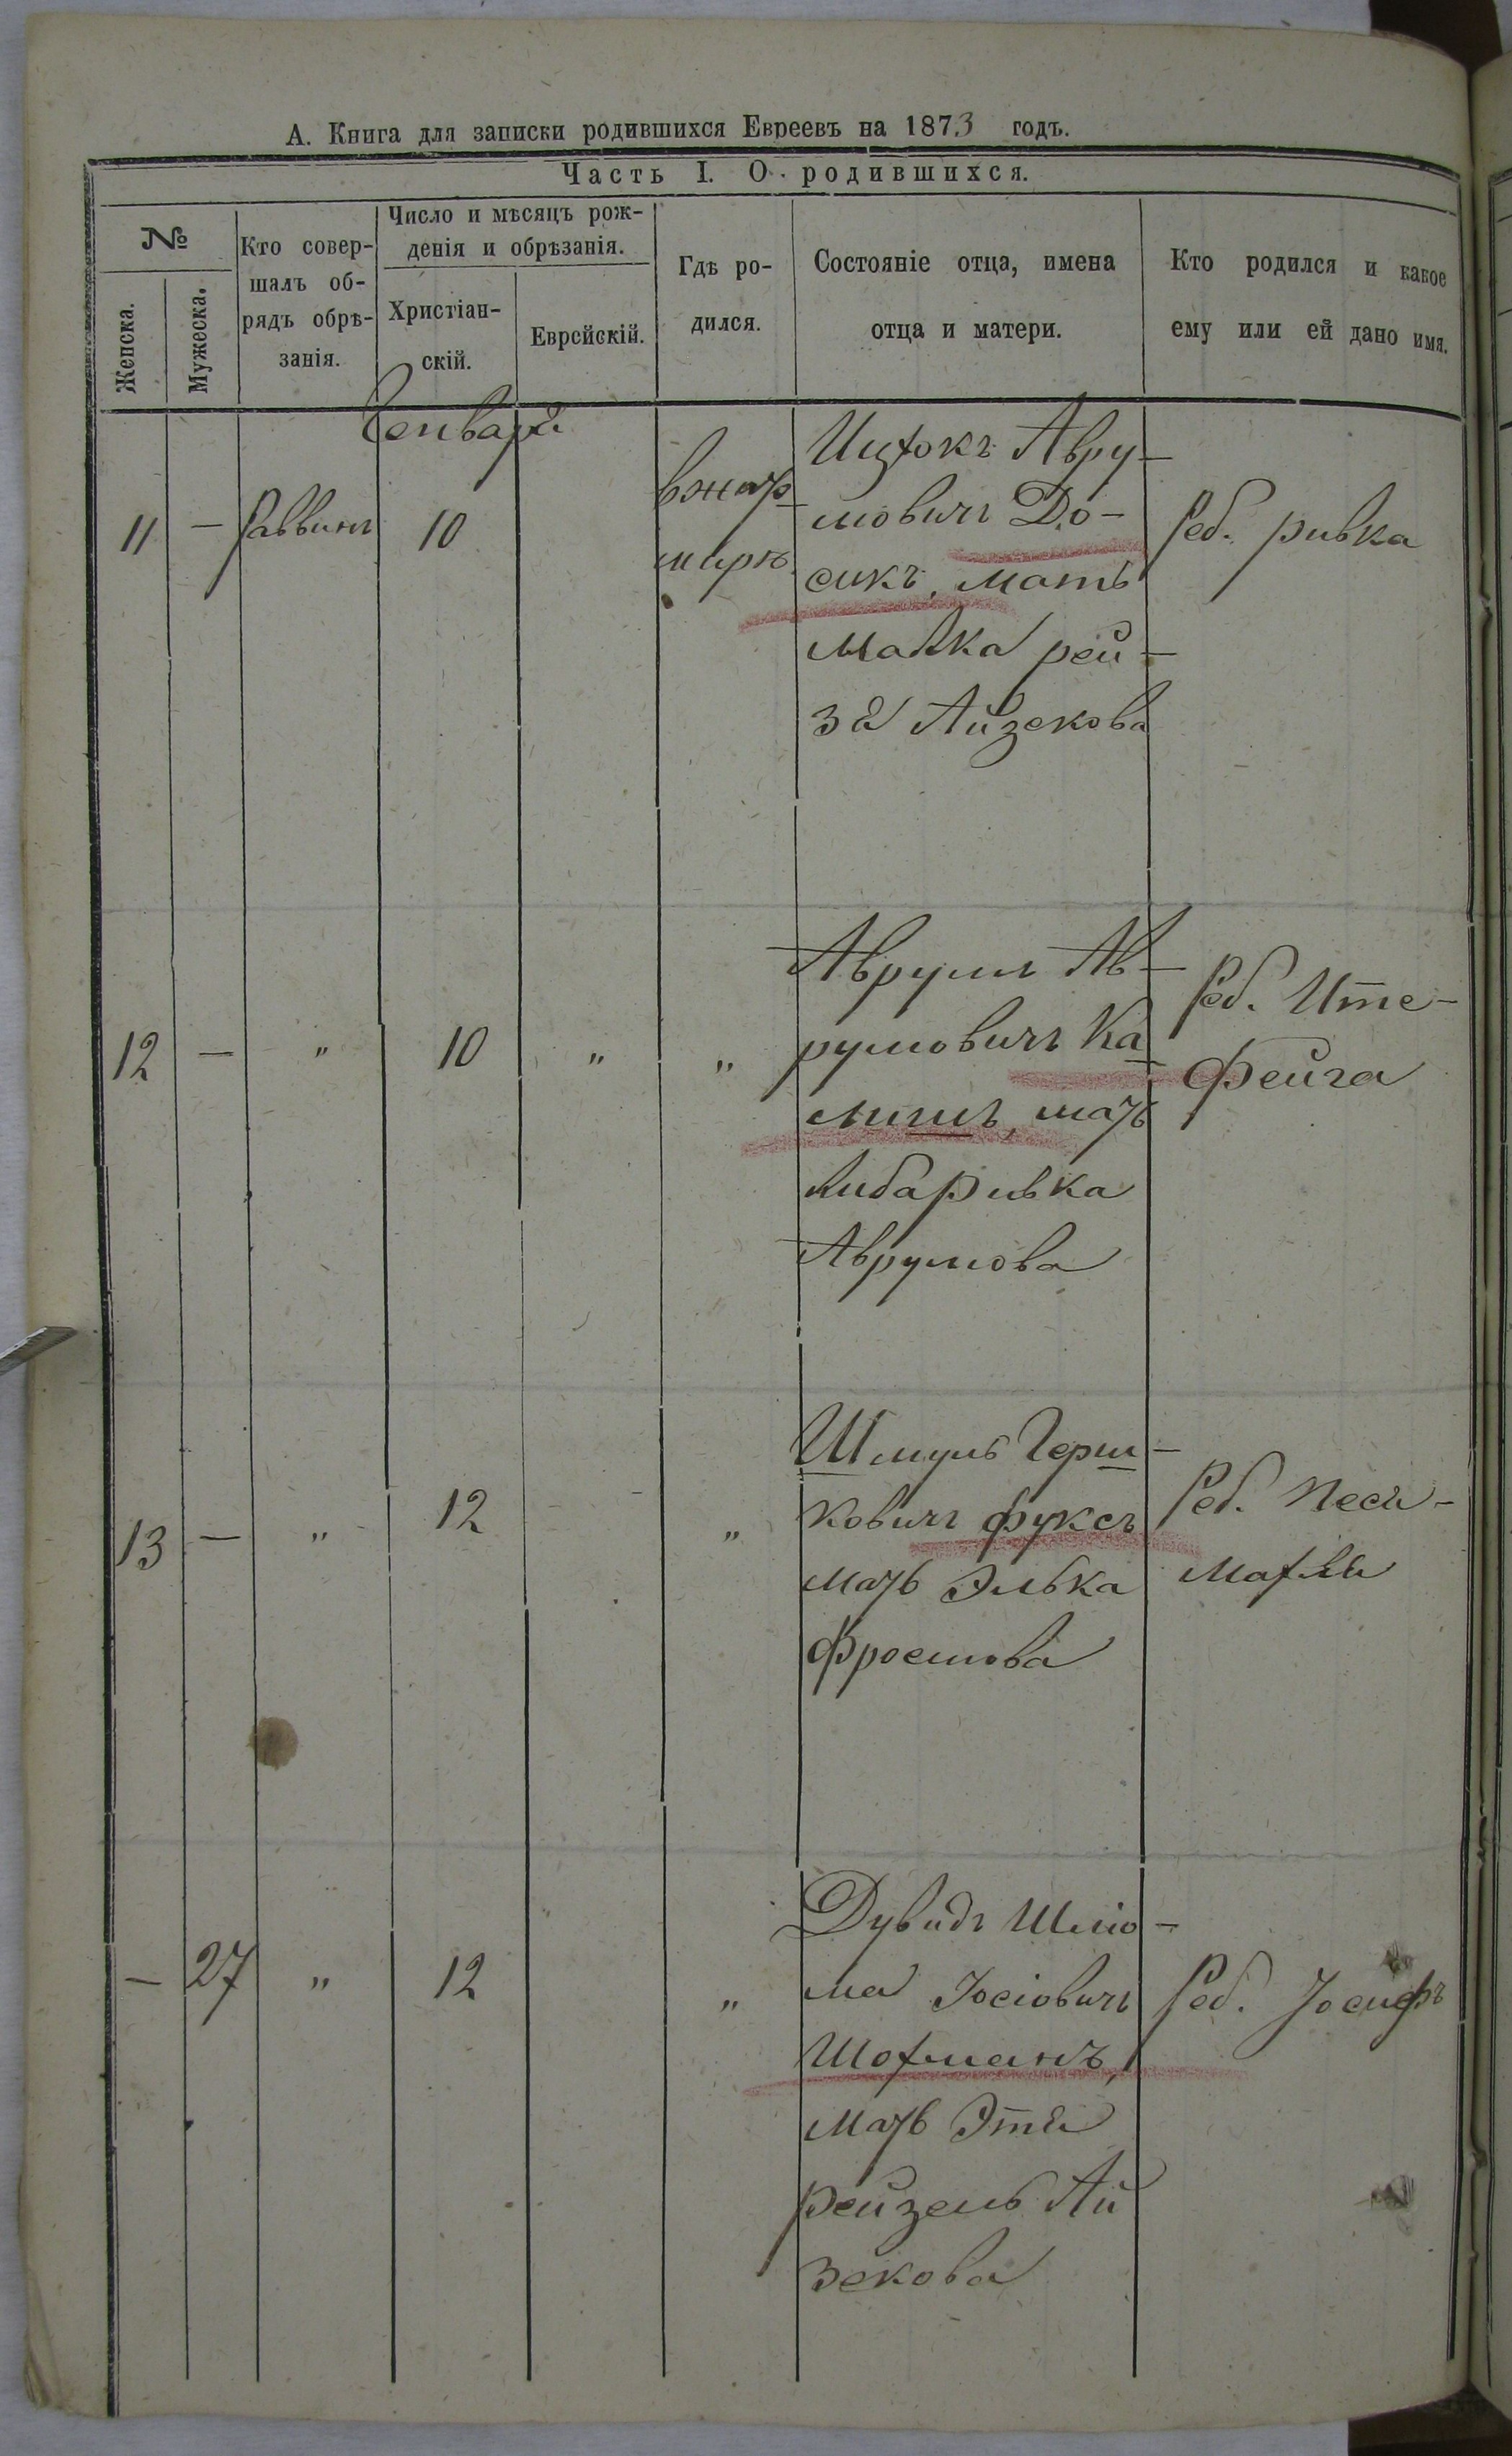 А. Книга для записки родившихся Евреевъ на 1873 годъ.
Часть I. О родившихся.
№
Женска.
Мужеска.
Кто совер-
шалъ об-
рядъ обрѣ-
занія.
Число и мѣсяцъ рож-
денія и обрѣзанія.
Христіан-
скій.
Еврейскій.
Гдѣ ро-
дился.
Состояніе отца, имена
отца и матери.
Кто родился и какое
ему или ей дано имя.
Генваря
11 — Раввинъ 10
вжит
мирѣ
Ицхокъ Авру-
мовичъ До-
сикъ, мать
Малка рей-
за Айзекова
Реб. ривка
12 — " 10 " "
Аврумъ Ав-
румовичъ Ка-
мишъ, мать
либаРивка
Аврумова
Реб. Ите-
Фейга
13 — " 12 "
Шмуль Герш-
ковичъ фуксъ
мать Элька
Фроимова
Реб. Песя-
Махля
— 27 " 12 "
Дувидъ Шлио-
ма Іосіовичъ
Шохманъ,
мать Этя
Рейзель Ай
зекова
Реб. Іосифъ